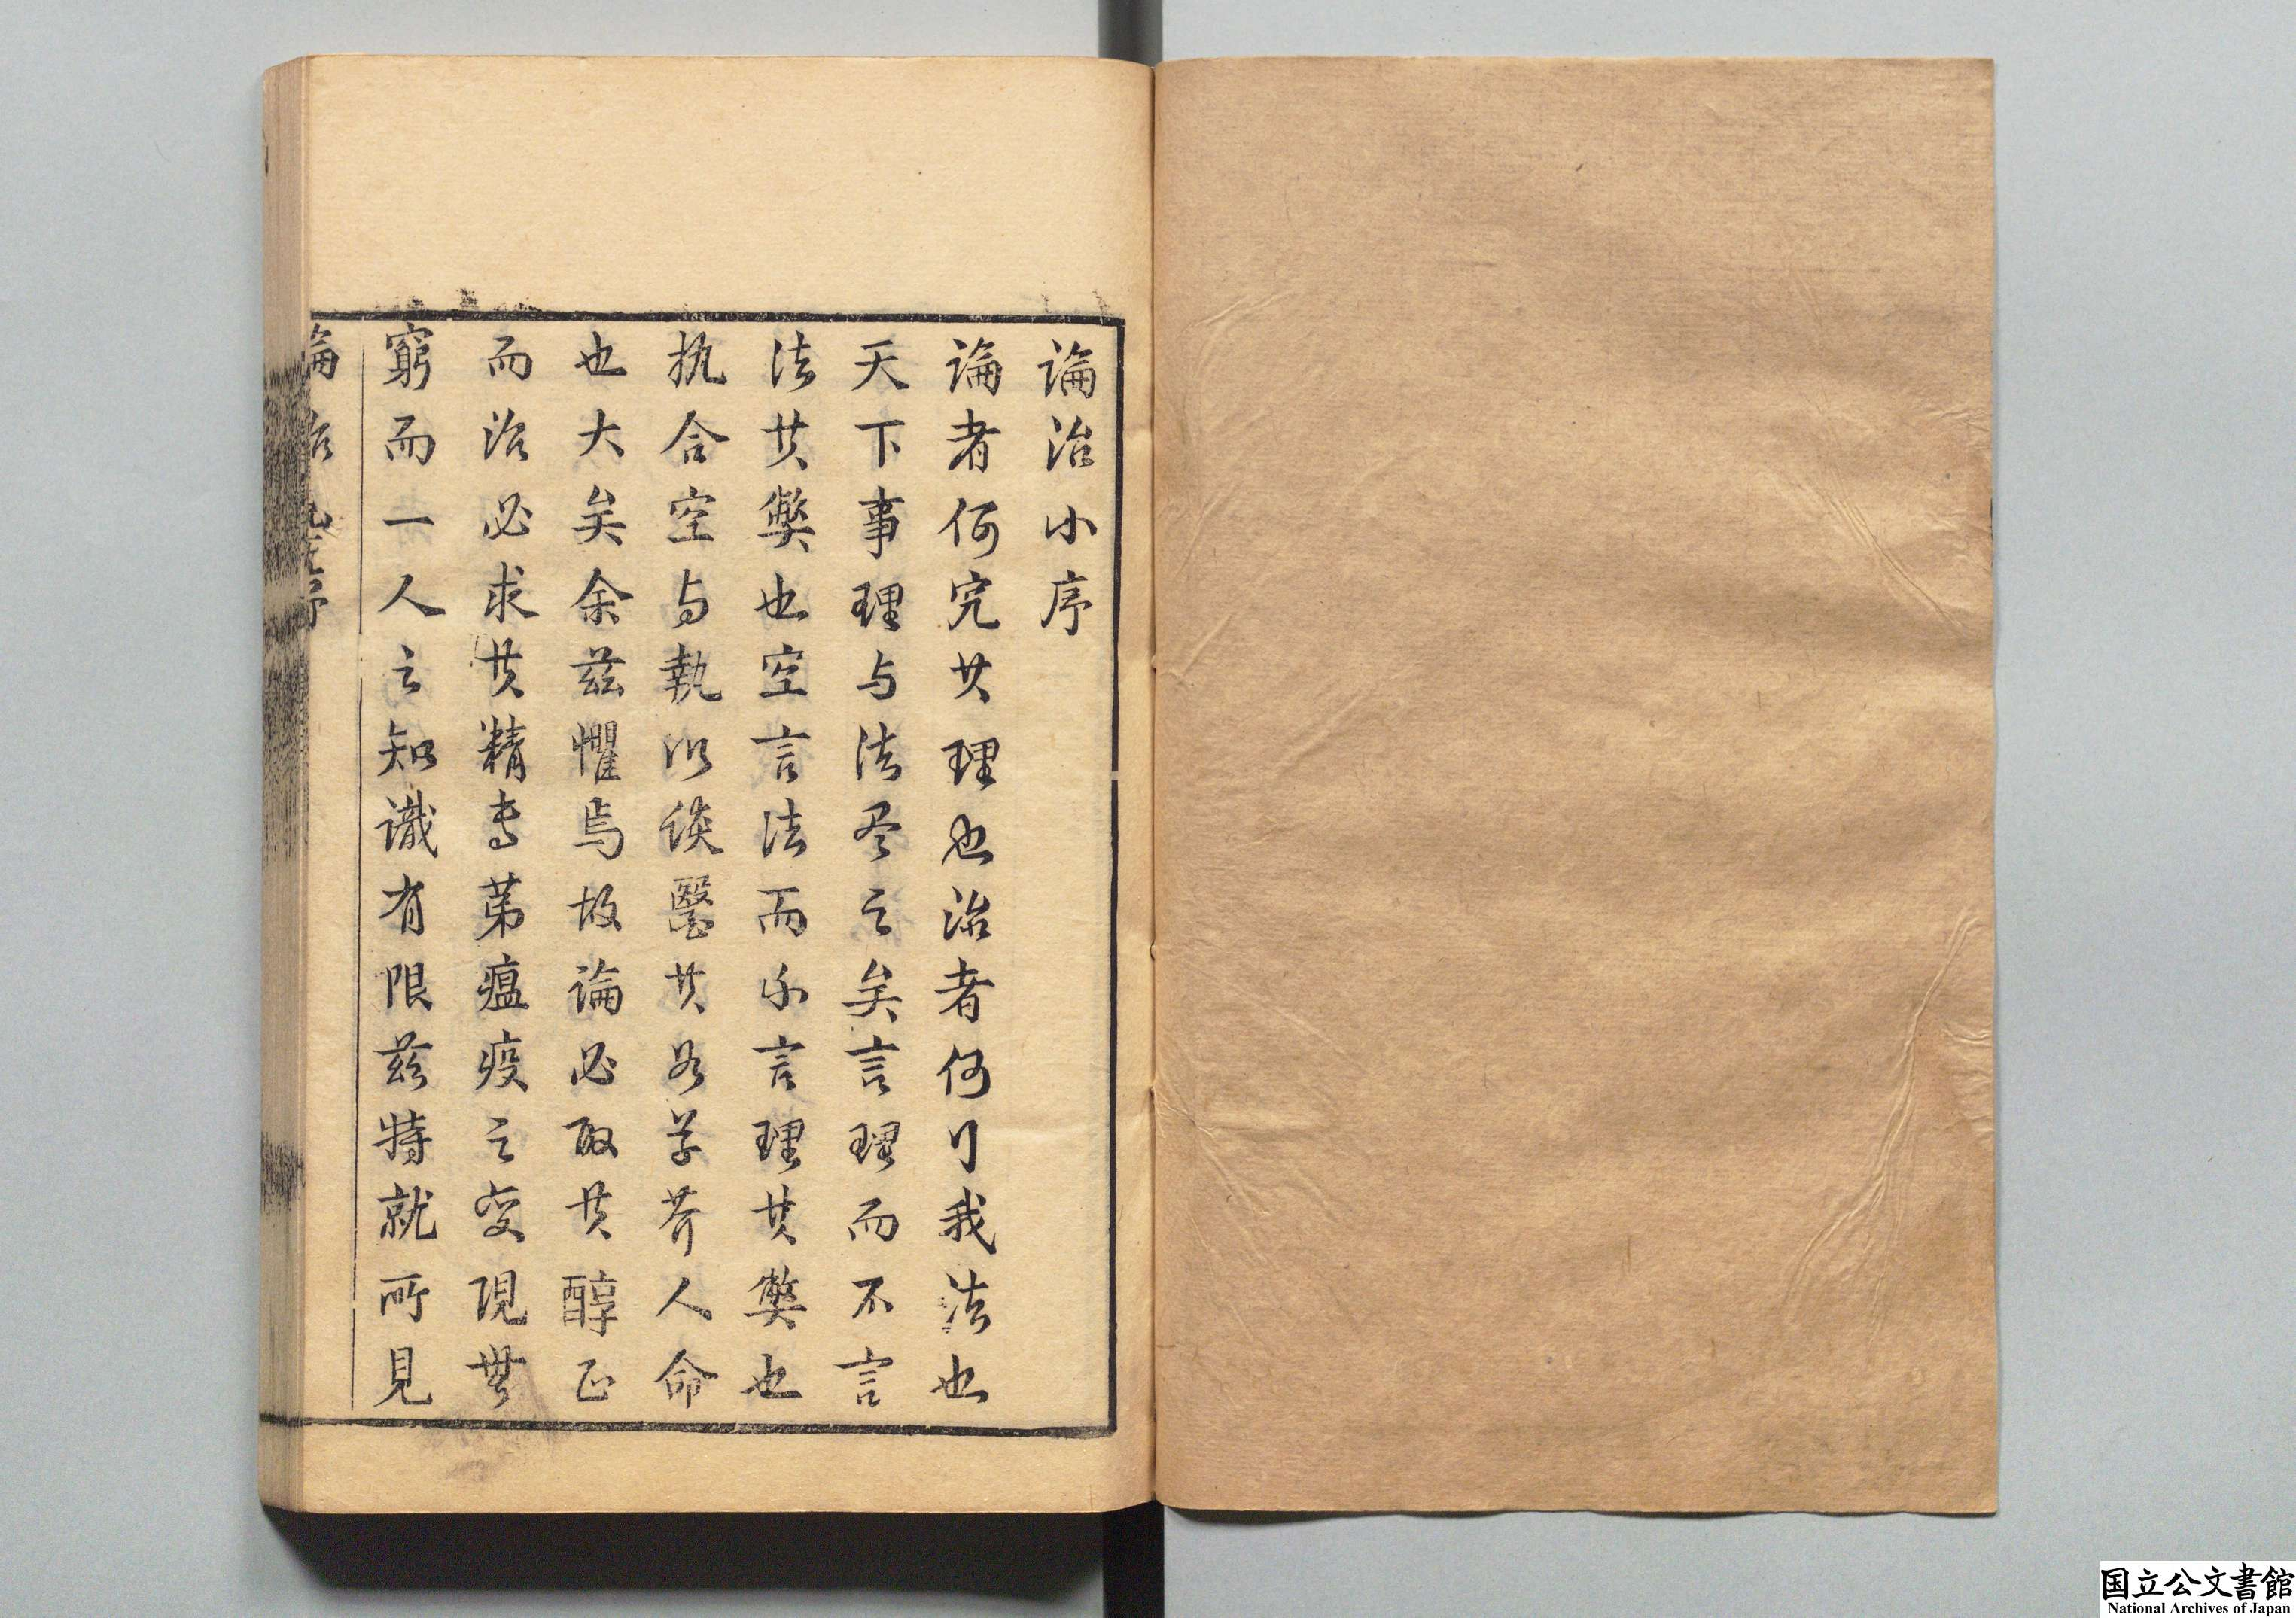 論治小序
論者何究其理也治者何行我法也
天下事理与法尽之矣言理而不言
法其弊也空言法而不言理其弊也
执合空与執以談醫其為草芥人命
也大矣余茲懼焉故論必取其醇正
而治必求其精专苐瘟疫之变現無
窮而一人之知識有限茲特就所見
論治
序
国立公文書館
National Archives of Japan